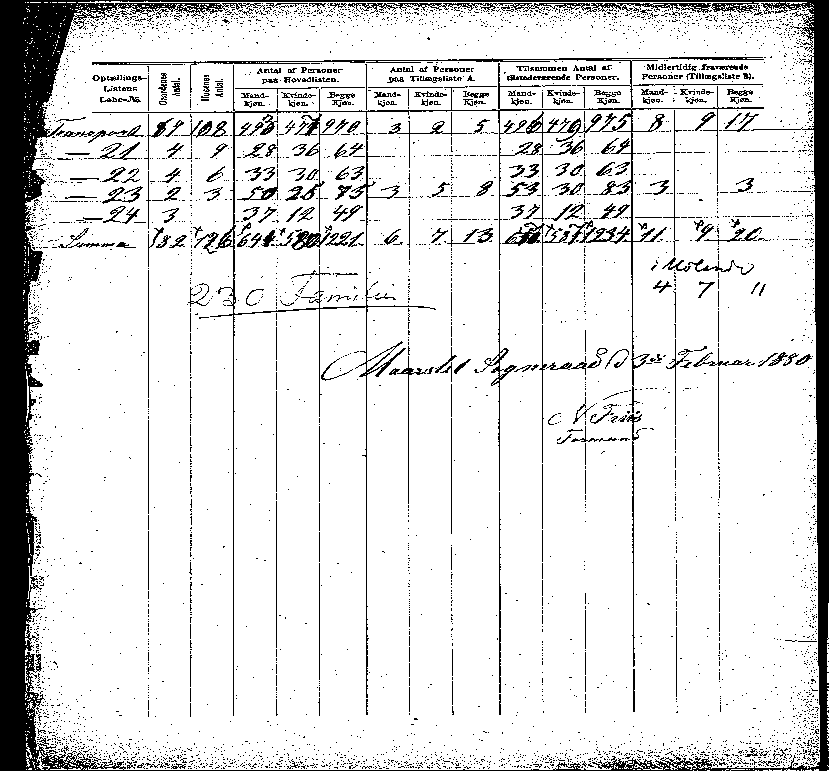 Optællings- Listens Løbe-No. Gaardenes Antal. Husenes Antal. Antal af Personer paa Hovedlisten. Antal af Personer paa Tillingsliste A. Tilsammen Antal af tilstedeværende Personer. Midlertidig fraværende Personer (Tillingsliste B).
Mand- kjøn. Kvinde- kjøn. Begge Kjøn. Mand- kjøn. Kvinde- kjøn. Begge Kjøn. Mand- kjøn. Kvinde- kjøn. Begge Kjøn. Mand- kjøn. Kvinde- kjøn. Begge Kjøn.
Transport 108 970 3 2 5 975 8 9 17
— 21 4 9 28 36 64 28 36 64
— 22 4 6 33 30 63 33 30 63
— 23 2 3 50 25 75 3 5 8 53 30 83 3 3
— 24 3 37 12 49 37 12 49
Summa 126 641 580 1221 6 7 13 1234 11 9 20
4 7 11
230 Familier
Maarslet Sogneraad d 3die Februar 1880
N Friis
Formand